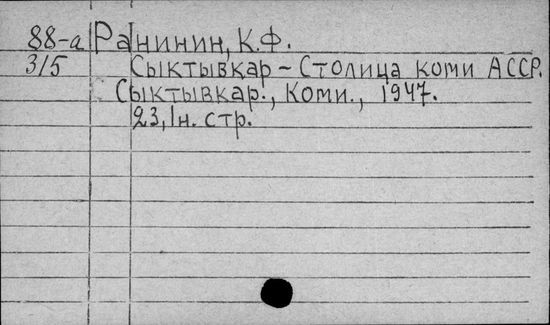 88-а Ранинин, К.Ф.
315 Сыктывкар - Столица коми АССР.
Сыктывкар., Коми., 1947.
23, 1н. стр.